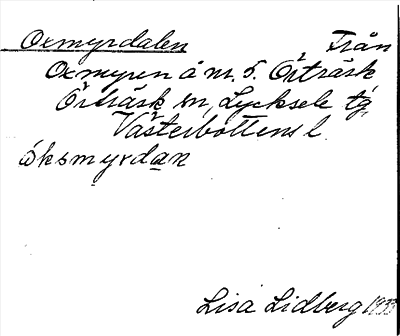 Oxmyrdalen Från
Oxmyren å nr. 5. Örträsk
Örträsk sn, Lycksele tg,
Västerbottens l.
óksmyrdạn
Lisa Lidberg 1933